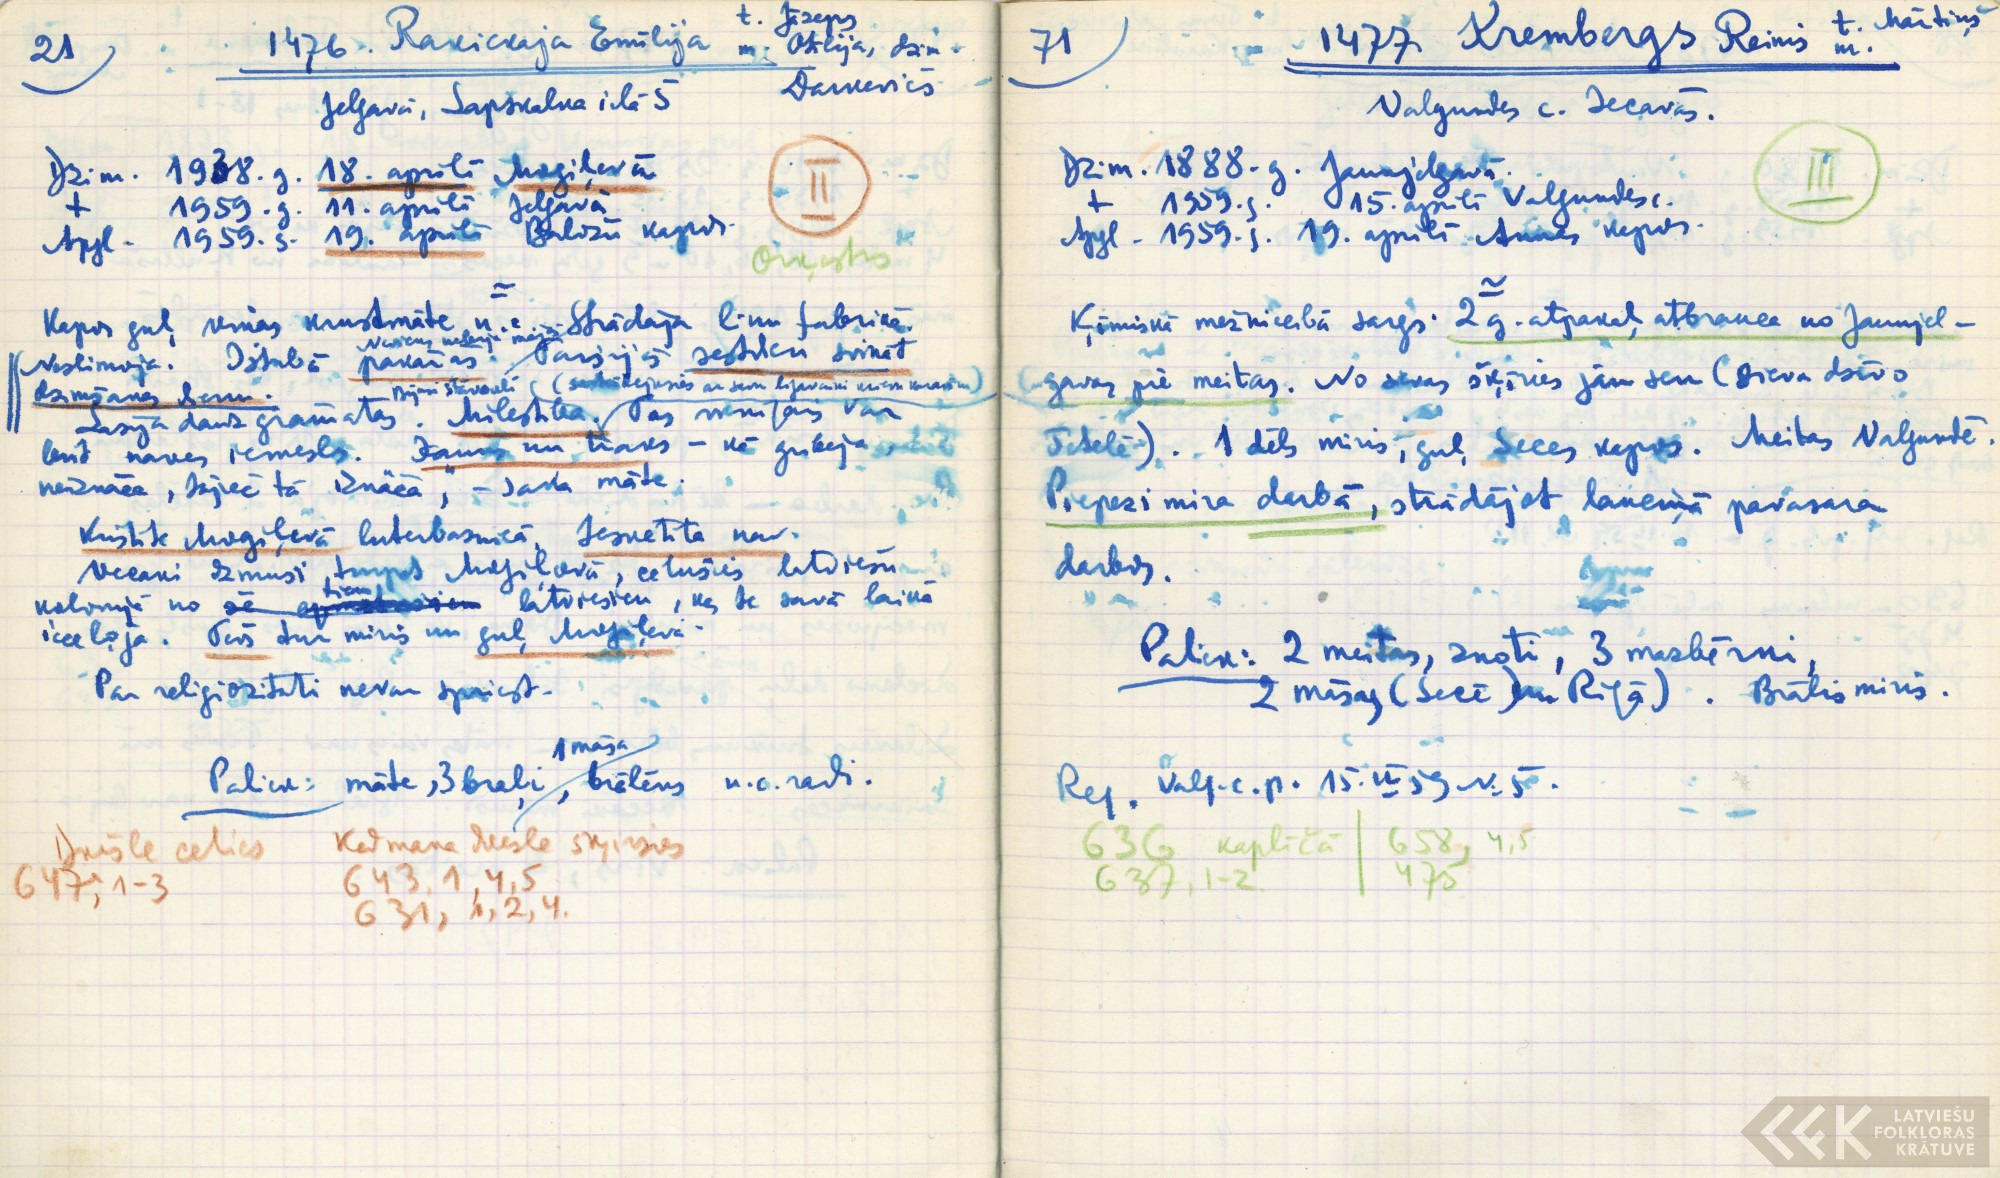 21
1476. Rakickaja Emīlija
t. Jāzeps
m. Otīlija, dzim.
Darkevičs
Jelgavā, Lapskalna ielā 5
Dzim. 1938. g. 18. aprīlī Mogiļevā
+ 1959. g. 11. aprīlī Jelgavā
Apgl. 1959. g. 19. aprīlī Baložu kapos.
II
Orķestris
Kapos guļ viņas krustmāte u.c. Strādāja linu fabrikā.
Neslimoja. Istabā pakārās. Taisījās sestdien svinēt
dzimšanas dienu.
Lasīja daudz grāmatas. Mīlestība. Tas vienīgais var
būt nāves iemesls. Jauns un traks – kā gribēja
neiznāca, tāpēc tā iznāca, – saka māte.
Kristīte Mogiļevā luterbaznīcā. Iesvētīta nav.
Vecāki izmusi turpat Mogiļevā, cēlušies latviešu
kolonijā no tiem latviešiem, kas te savā laikā
ieceļoja. Tēvs tur miris un guļ Mogiļevā.
Par religiozitāti nevar spriest.
1 māsa
Paliek: māte, 3 brāļi, brālēns u.c. radi.
Dvēsle celies
647, 1-3
Kad mana dvēsle šķirsies
643, 1, 4, 5
631, 1, 2, 4.
71
1477. Krembergs Reinis
t. Mārtiņš
m.
Valgundes c. Iecavās.
Dzim. 1888. g. Jaunjelgavā.
+ 1959. g. 15. aprīlī Valgundes c.
Apgl. 1959. g. 19. aprīlī Annas kapos.
III
Ķīmiskā mežniecībā sargs. 2 g. atpakaļ atbrauca no Jaunjel-
gavas pie meitas. No sevas šķīries jau sen (sieva dzīvo
Tetelē). 1 dēls miris, guļ Seces kapos. Meitas Valgundē.
Piepeži mira darbā, strādājot laukumā pavasara
darbos.
Paliek: 2 meitas, znoti, 3 mazbērni,
2 māsas (Secē un Rīgā). Brālis miris.
Reģ. Valg. c. p. 15. IV 59 N. 5.
636 kapličā | 658, 4,5
637, 1-2. | 475
LATVIEŠU
FOLKLORAS
KRĀTUVE